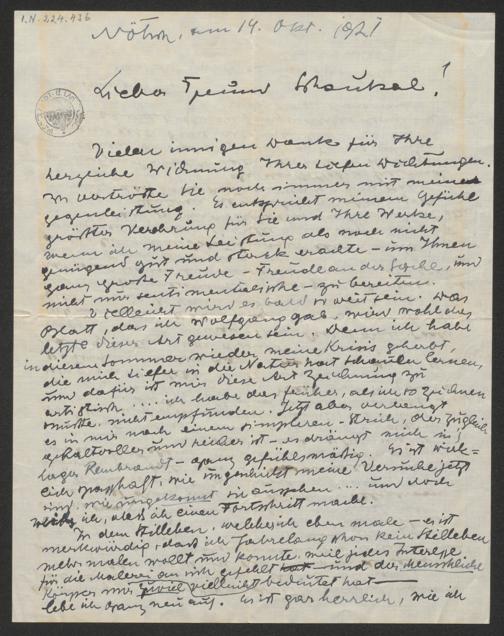 I.N. 224.436
Nötsch, am 14. Okt. 1921
Lieber Freund Schaukal!
Vielen innigen Dank für Ihre
herzliche Widmung Ihrer tiefen Dichtungen.
Sie noch immer mit meiner
Gegenleistung. Es entspricht meinem Gefühl
größter Verehrung für Sie und Ihre Werke,
wenn ich meine Leistung als noch nicht
genügend gut und stark erachte – um Ihnen
ganz große Freude – Freude an der Sache, und
nicht nur sentimentalische – zu bereiten.
Vielleicht wird es bald so weit sein. Das
Blatt, das ich Wolfgang gab, wird wohl das
letzte dieser Art gewesen sein. Denn ich habe
in diesem Sommer wieder meine Krisis gehabt,
die mich tiefer in die Natur hat schauen lernen,
und dafür ist mir diese Art Zeichnung zu
artistisch ..... ich habe das früher, als ich so zeichnen
mußte, nicht empfunden. Jetzt aber verlangt
es in mir nach einem simpleren Strich, der zugleich
gehaltvoller und reicher ist – es drängt mich in's
Lager Rembrandt – ganz gefühlsmäßig. Es ist wirk=
lich , wie ungeschickt meine Versuche jetzt
sind, wie ungekonnt sie aussehen .... und doch
weiß ich, daß ich einen Fortschritt mache.
In dem Stilleben, welches ich eben male – es ist
merkwürdig, daß ich jahrelang schon kein Stilleben
mehr malen wollte und konnte, weil jedes Interesse
für die Malerei an sich gefehlt hat – und der menschliche
Körper mir zuviel vielleicht bedeutet hat –
lebe ich ganz neu auf. Es ist gar herrlich, wie ich